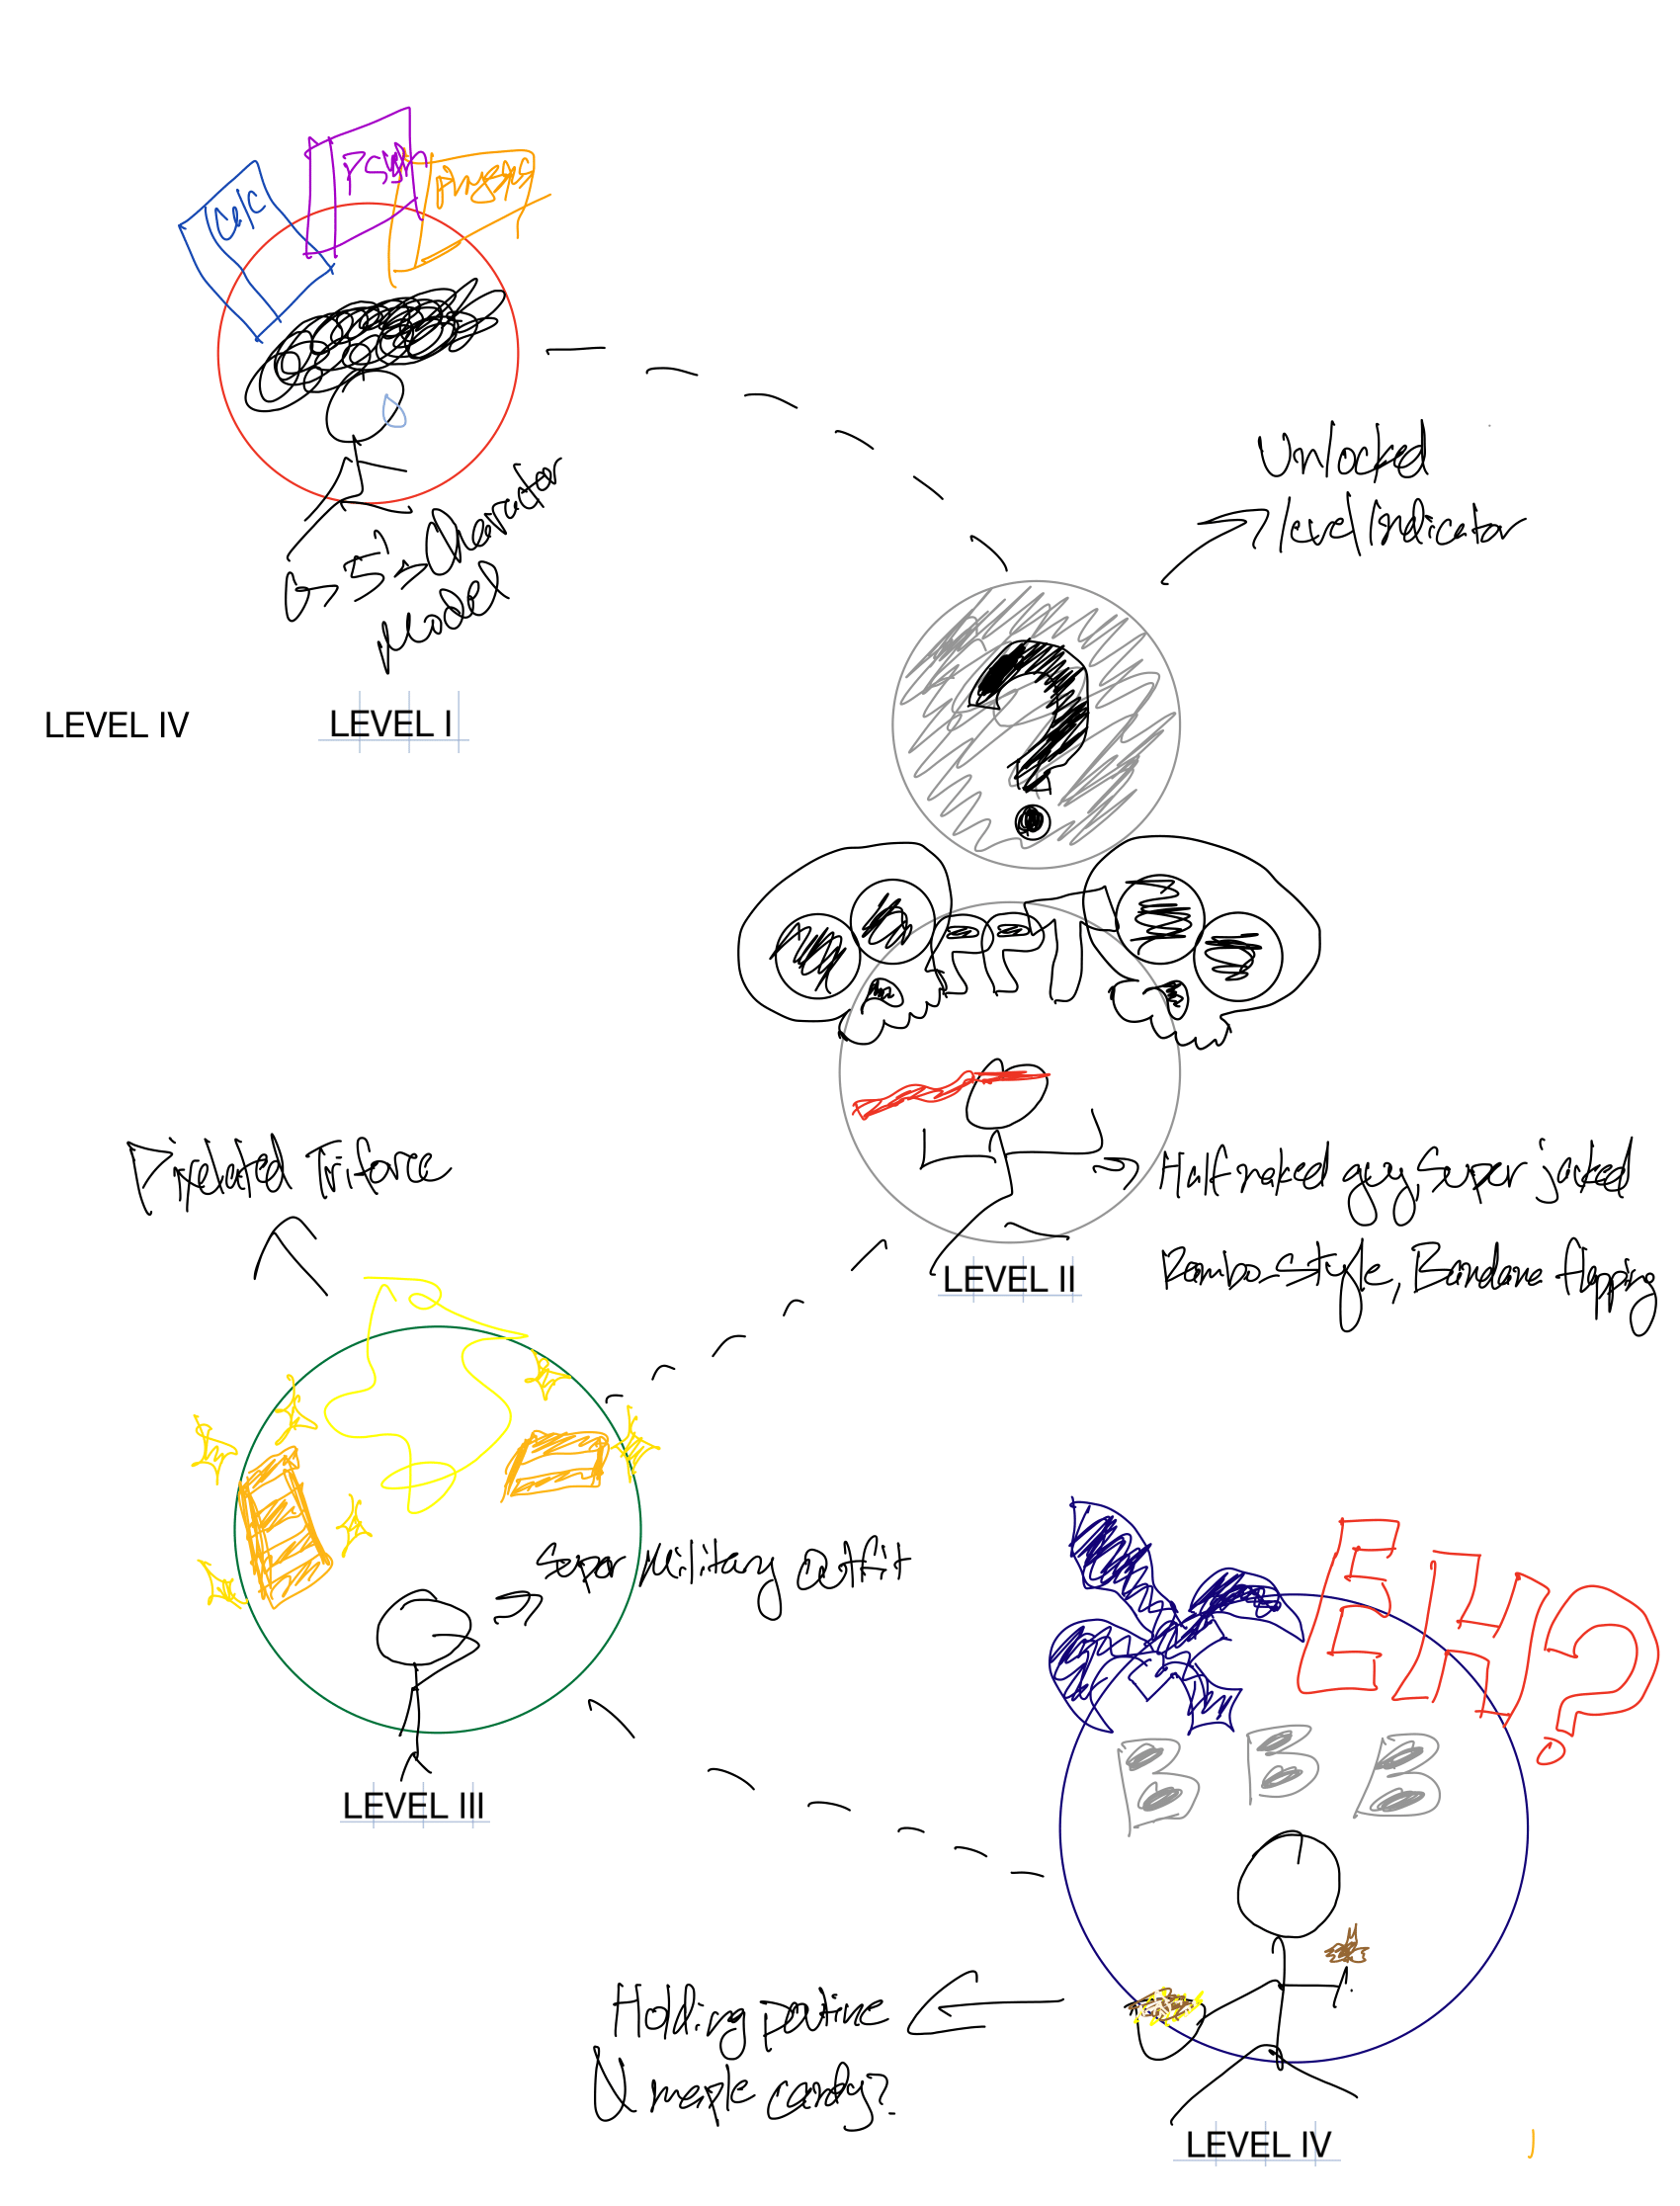 Calc
Psych
Physics
G-5's Character
Model
LEVEL IV
LEVEL I
Unlocked
level indicator
?
PPT
Half naked guy, Super jacked
Rambo-Style, Bandana flapping
LEVEL II
Pixelated Triforce
Super Military Outfit
LEVEL III
EH?
B B B
Holding poutine
& maple candy?
LEVEL IV